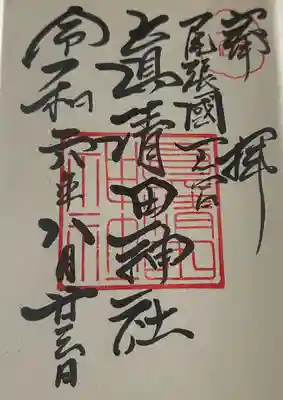 奉拝
尾張國一宮
真清田神社
令和元年八月廿三日